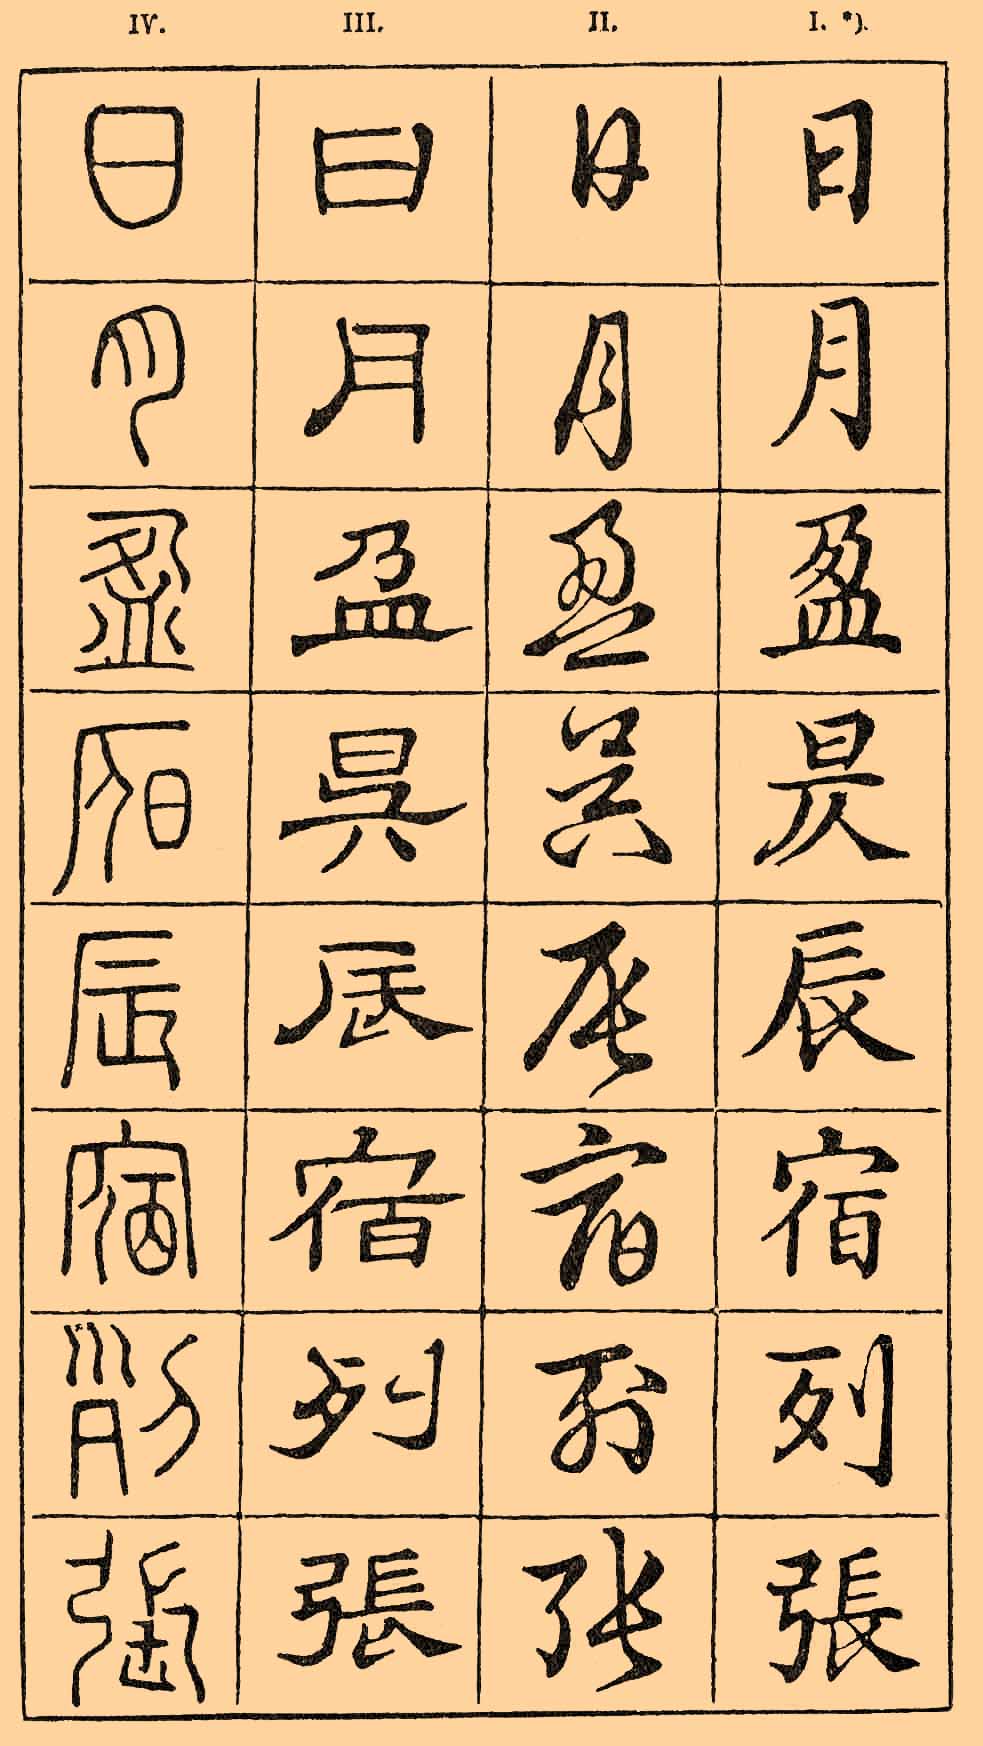 IV. III. II. I. *).
日 日 日 日
月 月 月 月
盈 盈 盈 盈
昃 昃 昃 昃
辰 辰 辰 辰
宿 宿 宿 宿
列 列 列 列
張 張 張 張